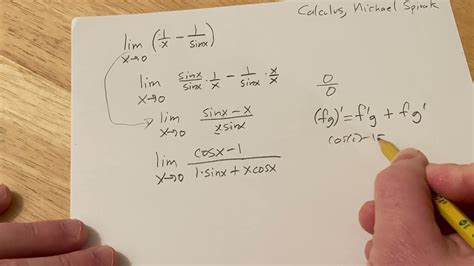 Calculus, Michael Spivak
lim x→0 (1/x - 1/sinx)
lim x→0 sinx/sinx · 1/x - 1/sinx · x/x
lim x→0 (sinx - x)/(xsinx)
lim x→0 (cosx - 1)/(1·sinx + xcosx)
0/0
(fg)' = f'g + fg'
cos(0)-1=